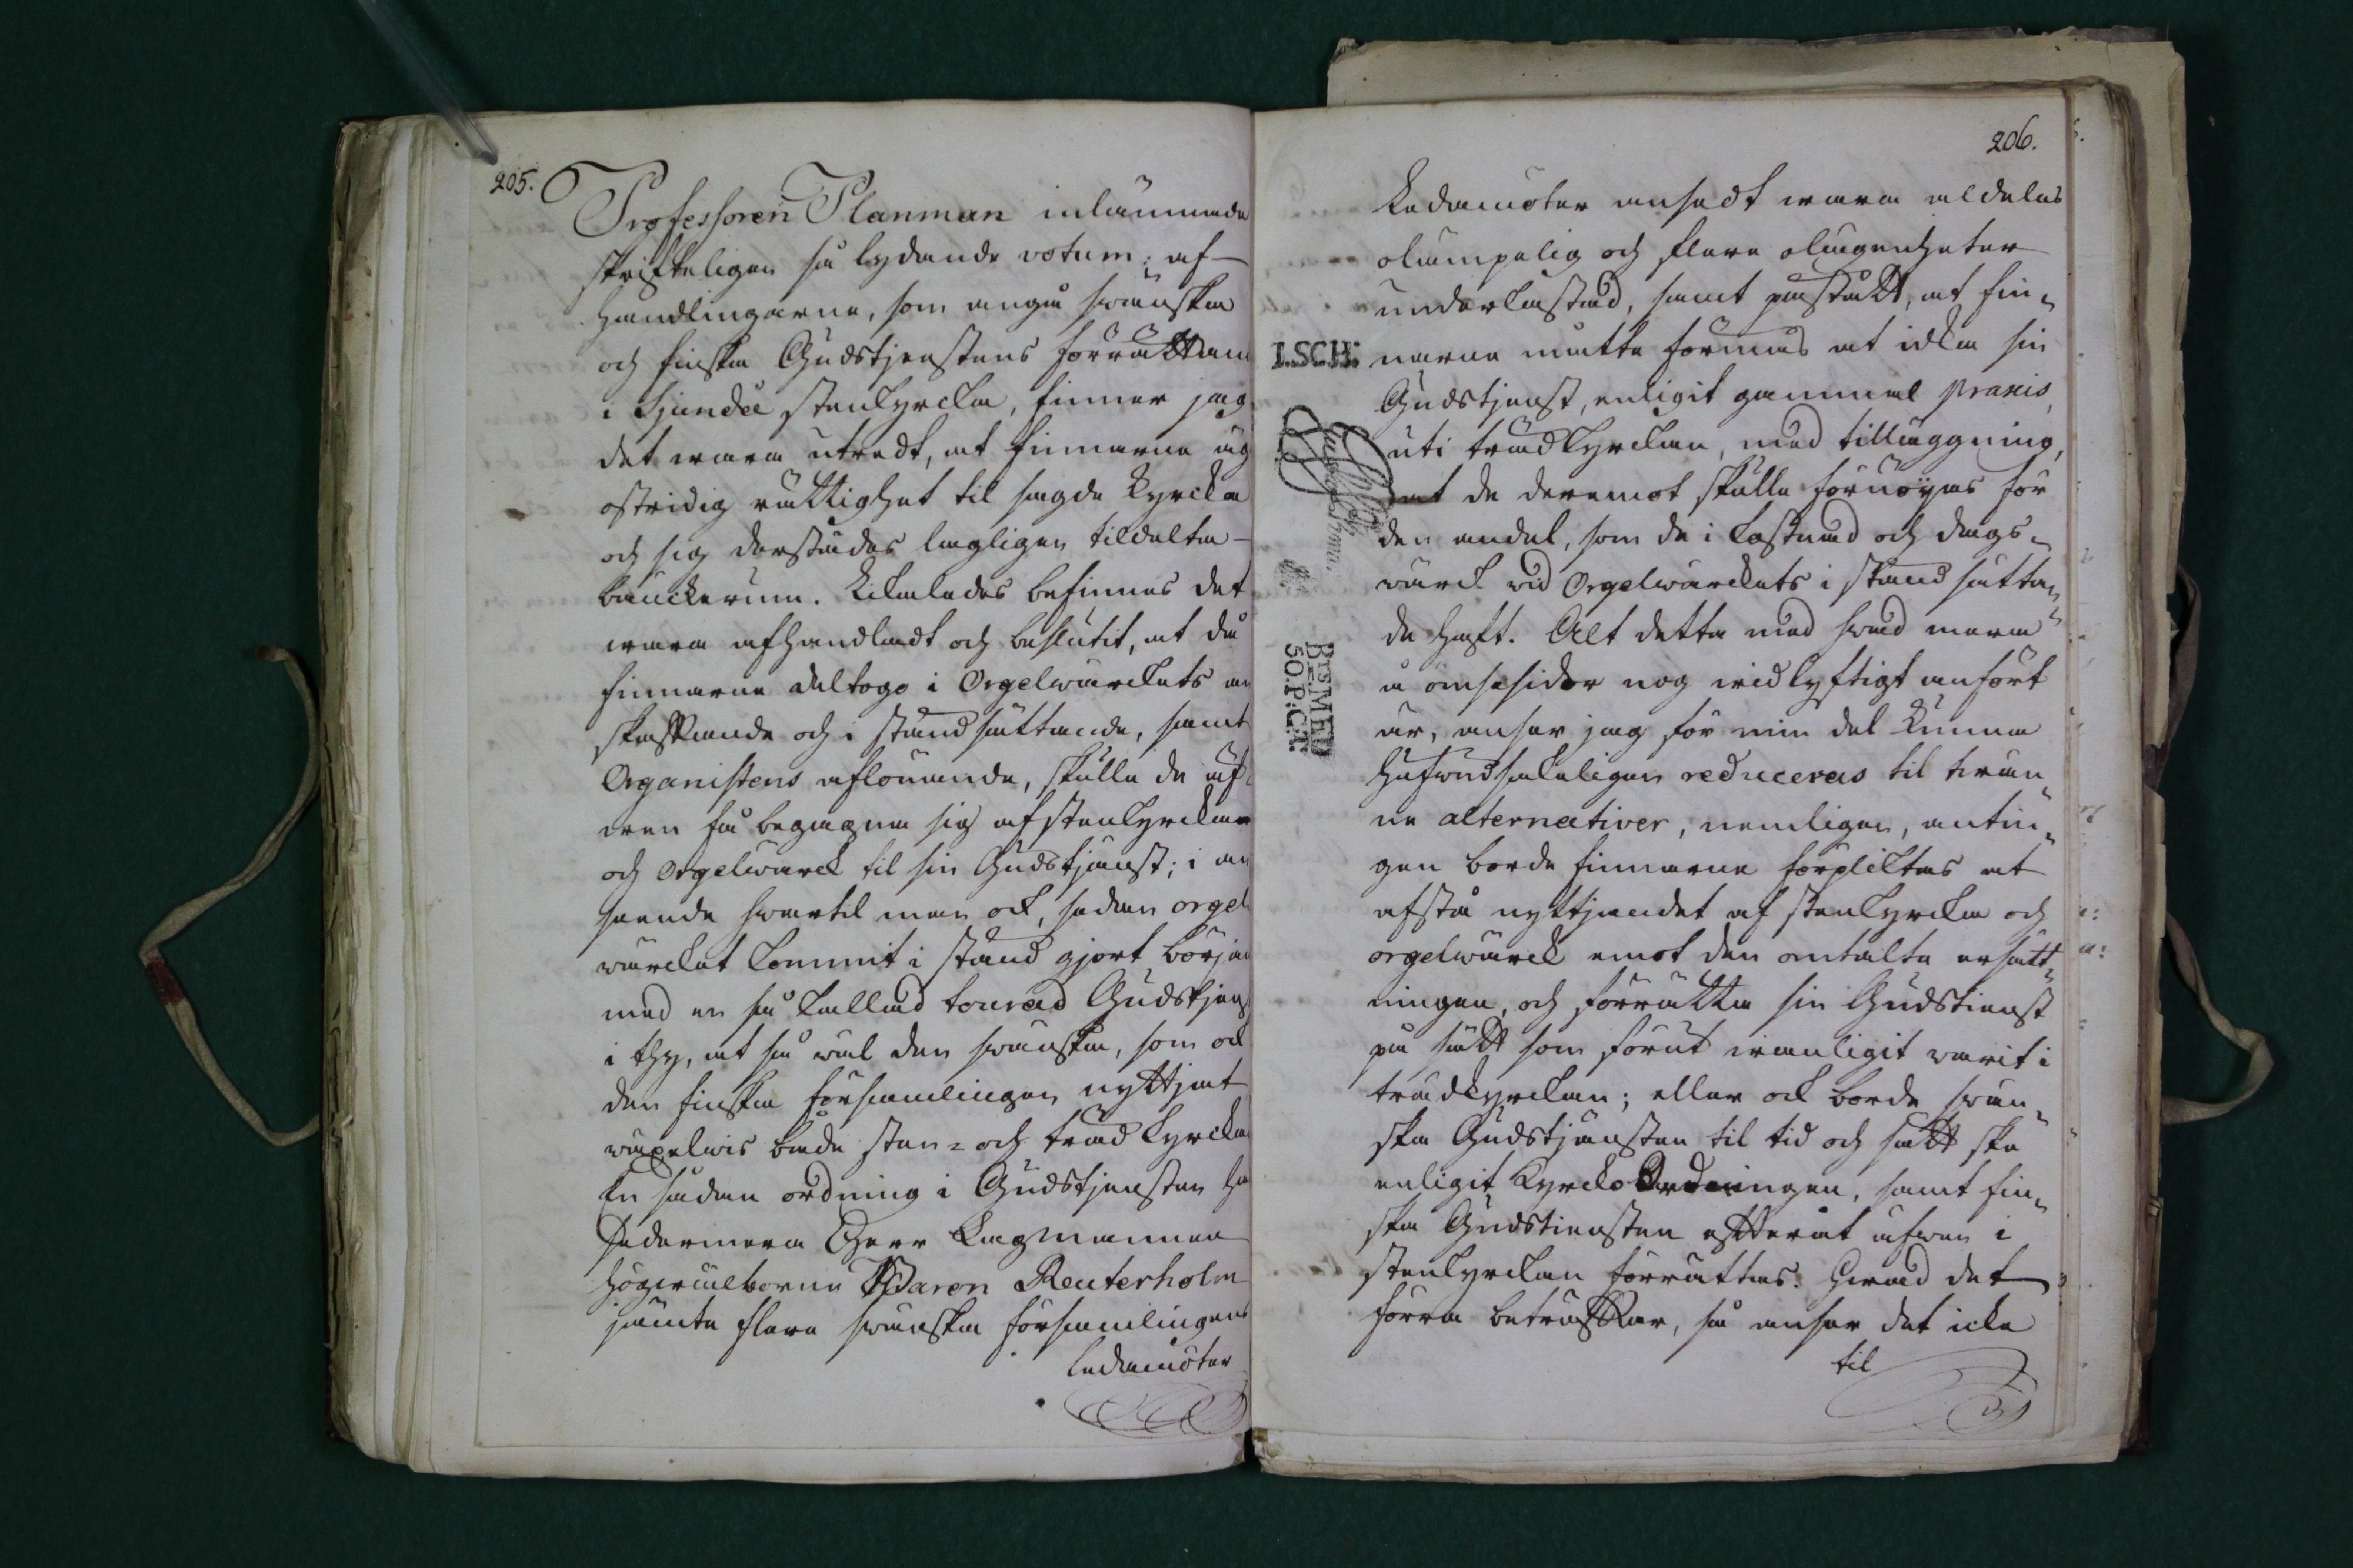 205.
Professoren Planman inlämnade
skrifteligen så lydande votum: af
handlingarne, som angå swänska
och finska Gudstjenstens förrättan
i Sjundeå stenkyrcka, finner jag
det wara utredt, at finnarne äg
ostridig rättighet til sagde kyrcka
och sig derstädes lagligen tildelta
bänckerum. Likaledes befinnes det
wara afhandladt och beslutit, at då
finnarne deltogo i Orgelwärckets an
skaffande och i stånd sättande, samt
Organistens aflönande, skulle de äf
wen få begagna sig af stenkyrckan
och Orgelwärck til sin Gudstjänst; i an
seende hwartil man ock, sedan orgel
wärcket kommit i stånd gjort början
med en så kallad tourad Gudstjenst
i thy, at så wäl den swänska, som ock
den finska församlingen nyttjat
wäxelwis både sten- och träd kyrckan
En sådan ordning i Gudstjensten ha
sedermera Herr Lagmannen
högwälborne Baron Reuterholm
jämte flere swänska församlingens
Ledamöter
206.
Ledamöter ansedt wara aldeles
olämpelig och flere olägenheter
underkastad, samt påstådt, at fin-
narne måtte förmås at idka sin
Gudstjenst, enligit gammal praxis,
uti trädkyrckan, med tilläggning,
at de deremot skulle förnöyas för
den andel, som de i kostnad och dags-
wärck wid Orgelwärckets i stånd sättan-
de haft. Alt detta med hwad mera
å ömsesidor nog widlyftigt anfört
är, anser jag för min del kunna
hufwudsakeligen reduceras til twän-
ne alternativer, nemligen, antin-
gen borde finnarne förpliktas at
afstå nyttjandet af stenkyrcka och
orgelwärck emot den omtalte ersätt-
ningen, och förrätta sin Gudstienst
på sätt som förut wanligit warit i
trädkyrckan; eller ock borde swän-
ska Gudstjänsten til tid och sätt ske
enligit KyrckoOrdningen, samt fin-
ska Gudstiensten efteråt äfwen i
stenkyrckan förrättas. Hwad det
förra beträffar, så anser det icke
til
I.SCH:
BrsMED
50.P:C:T: